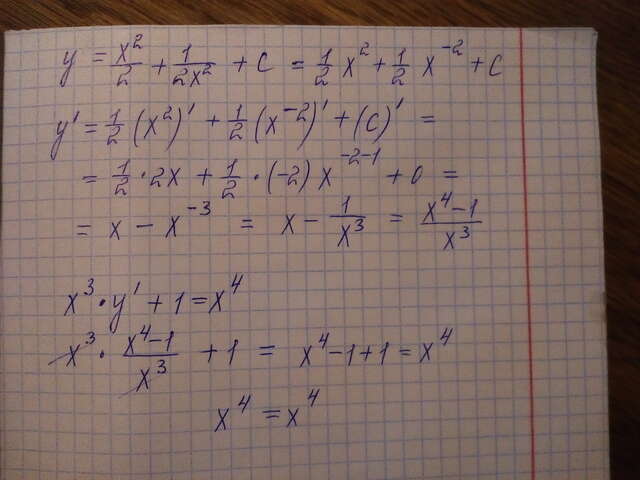 y = x²/2 + 1/2x² + C = 1/2 x² + 1/2 x⁻² + C
y' = 1/2 (x²)' + 1/2 (x⁻²)' + (C)' =
= 1/2 · 2x + 1/2 · (-2) x⁻²⁻¹ + 0 =
= x - x⁻³ = x - 1/x³ = x⁴-1/x³
x³ · y' + 1 = x⁴
x³ · x⁴-1/x³ + 1 = x⁴ - 1 + 1 = x⁴
x⁴ = x⁴